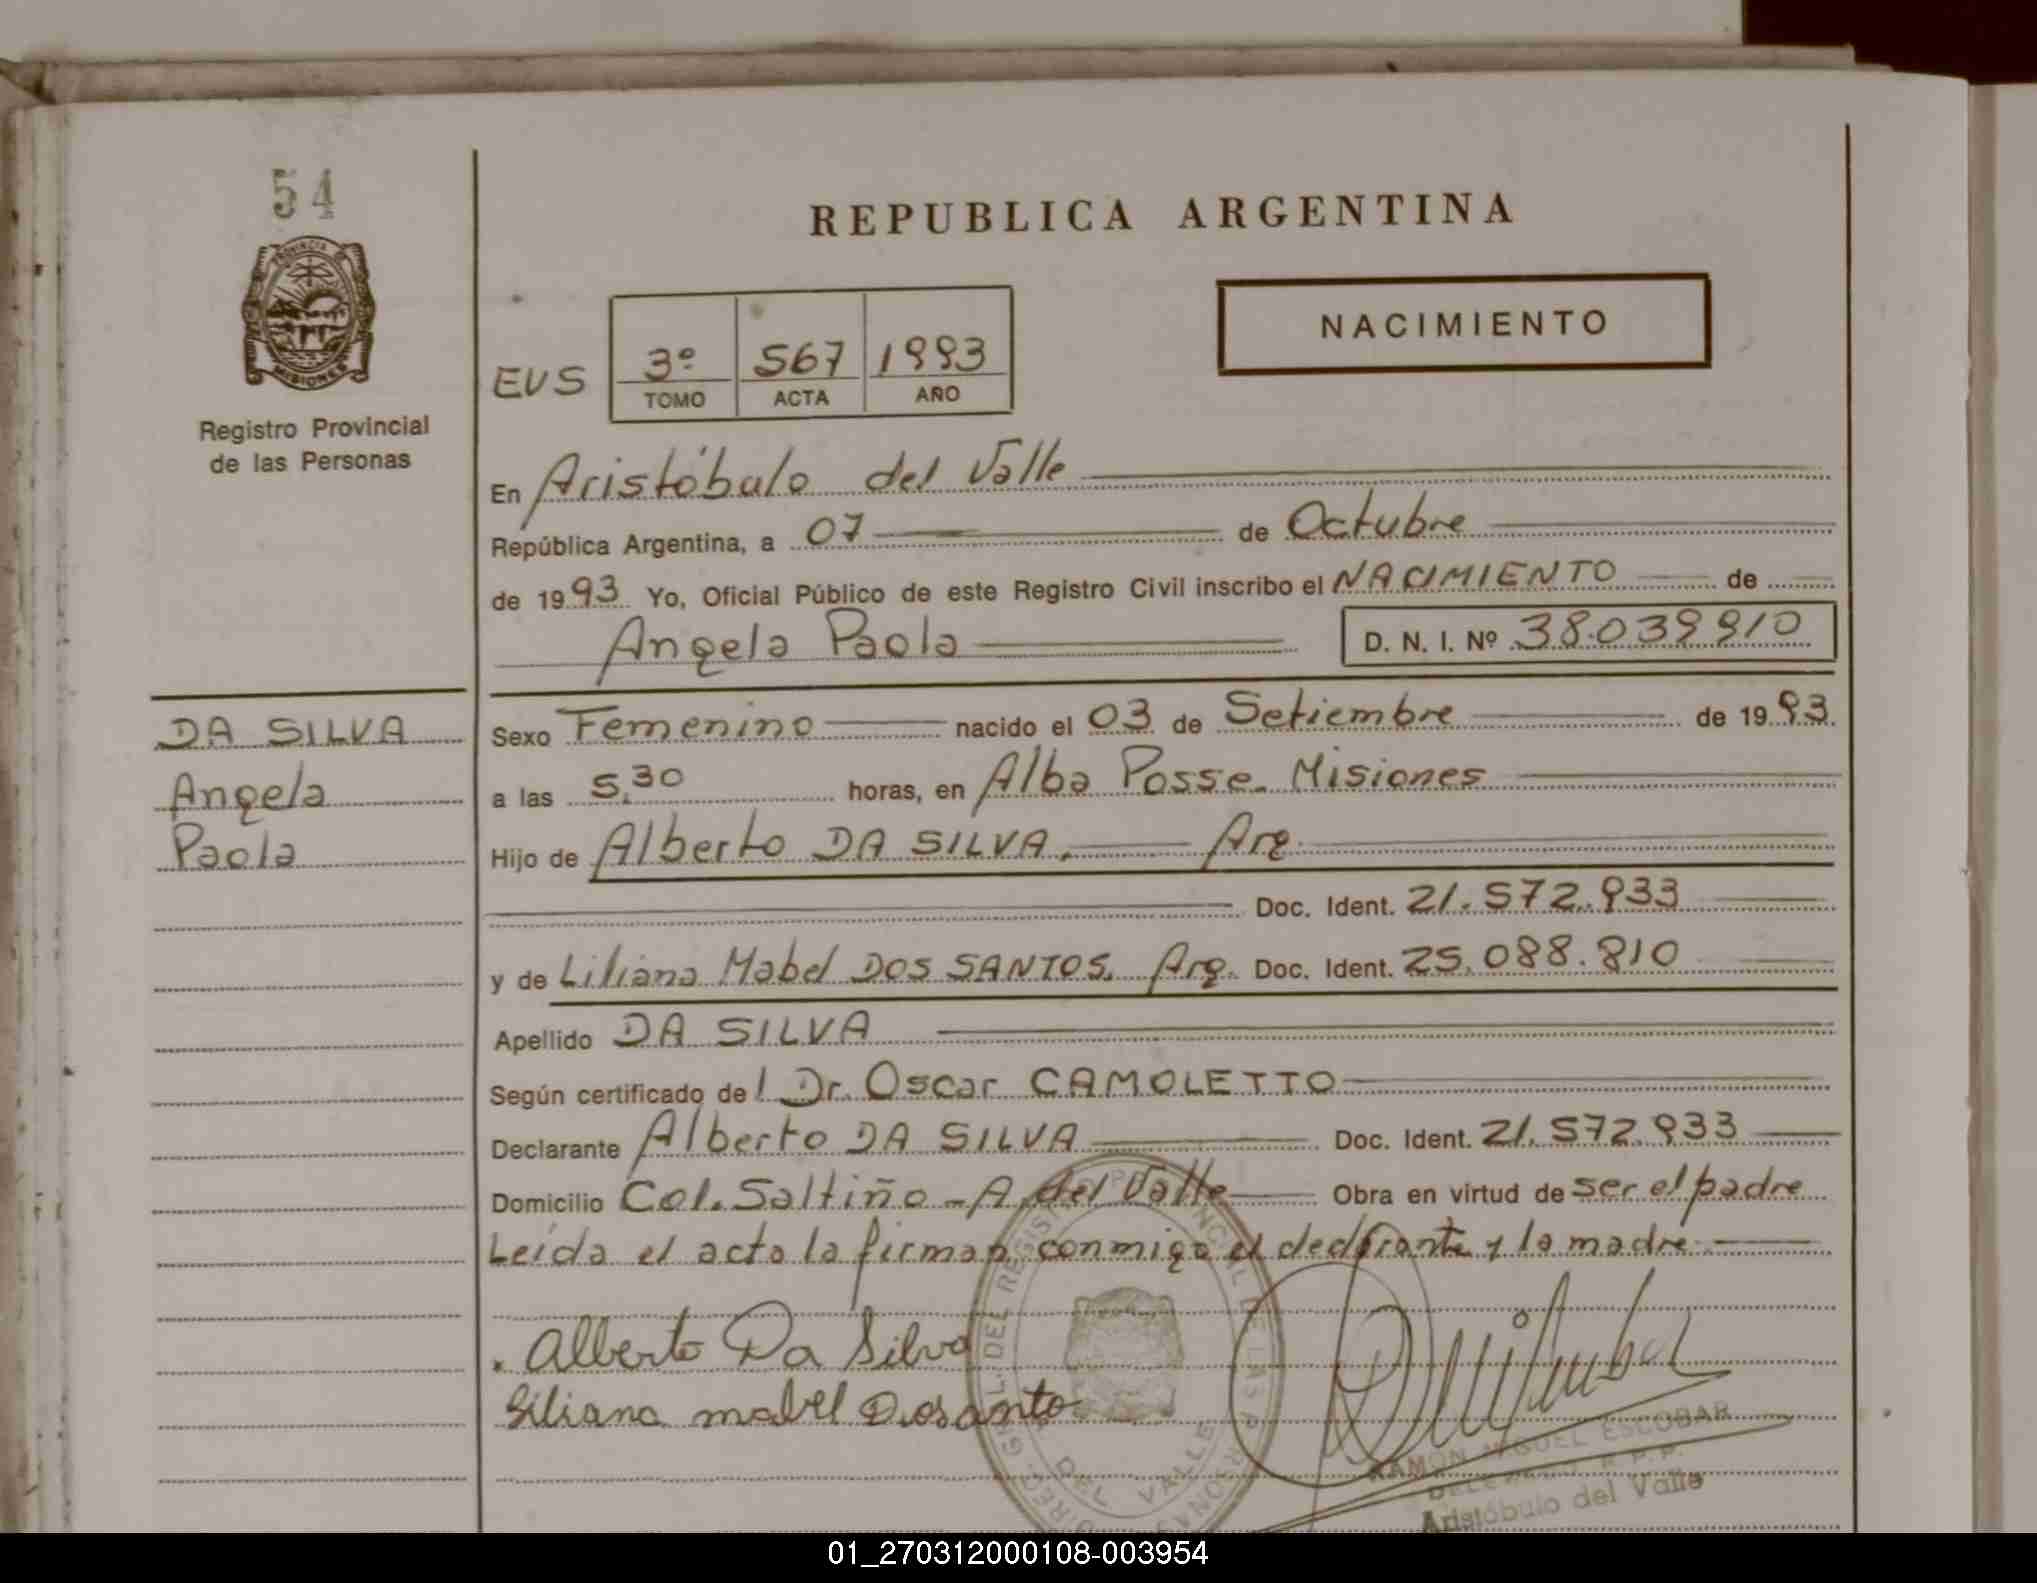 54
PROVINCIA
MISIONES
Registro Provincial
de las Personas
REPUBLICA ARGENTINA
NACIMIENTO
EVS
3º 567 1993
TOMO ACTA AÑO
En Aristóbulo del Valle
República Argentina, a 07 de Octubre
de 1993 Yo, Oficial Público de este Registro Civil inscribo el NACIMIENTO de
Angela Paola D. N. I. Nº 38.039.910
DA SILVA
Angela
Paola
Sexo Femenino nacido el 03 de Setiembre de 1993.
a las 5,30 horas, en Alba Posse - Misiones
Hijo de Alberto DA SILVA. Arg.
Doc. Ident. 21.572.933
y de Liliana Mabel DOS SANTOS. Arg. Doc. Ident. 25.088.810
Apellido DA SILVA
Según certificado de l Dr. Oscar CAMOLETTO
Declarante Alberto DA SILVA Doc. Ident. 21.572.933
Domicilio Col. Saltiño - A. del Valle Obra en virtud de ser el padre
Leída el acta la firman conmigo el declarante y la madre
Alberto Da Silva
Liliana mabel Dosanto
DEL VALLE
RAMÓN MIGUEL ESCOBAR
Aristóbulo del Valle
01_270312000108-003954